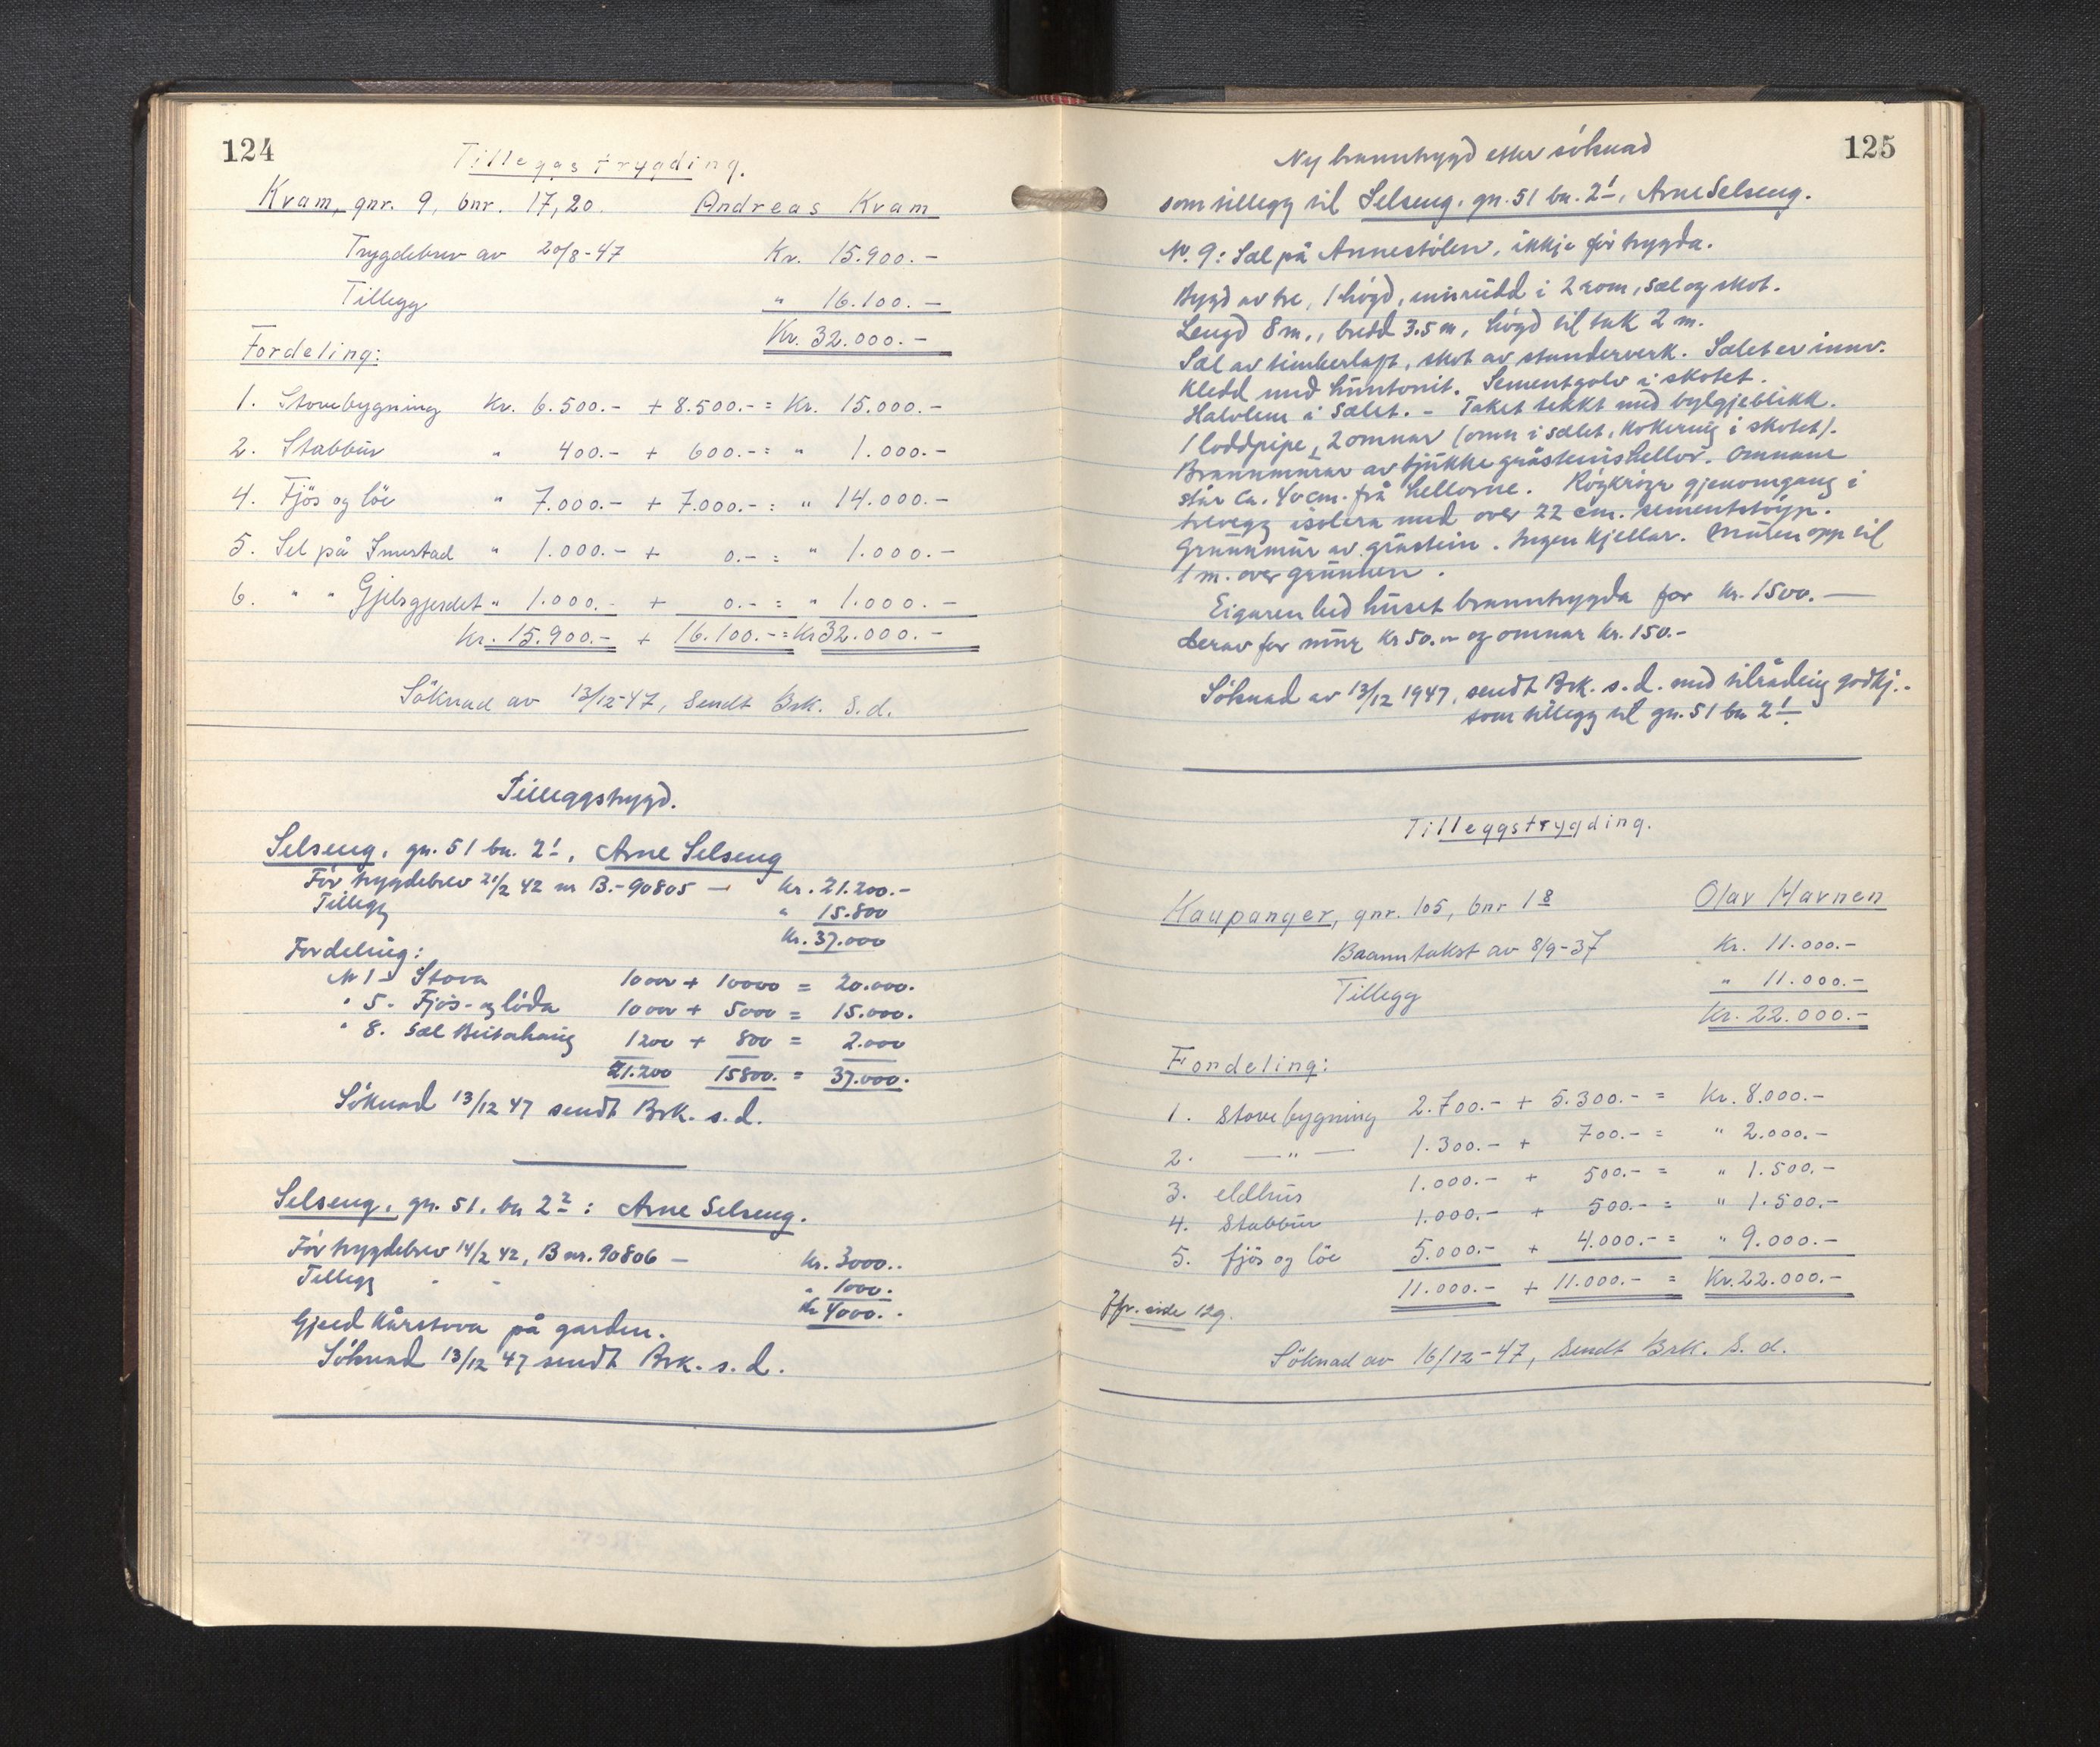 124
Tilleggstrygding.
Kvam, gnr. 9, bnr. 17,20. Andreas Kvam
Trygdebrev av 20/8-47 Kr. 15.900.-
Tillegg " 16.100.-
Kr. 32.000.-
Fordeling:
1. Stovebygning Kr. 6.500.- + 8.500.- = Kr. 15.000.-
2. Stabbur " 400.- + 600.- = " 1.000.-
4. Fjös og löe " 7.000.- + 7.000.- = " 14.000.-
5. Sel på Smestad " 1.000.- + 0.- = " 1.000.-
6. " " Gjelsgjerdet " 1.000.- + 0.- = " 1.000.-
Kr. 15.900.- + 16.100.- = Kr 32.000.-
Söknad av 13/12-47, Sendt Brk. S.d.
Tilleggstrygd.
Selseng, gn. 51 bn. 2¹, Arne Selseng
För trygdebrev 21/2 42 nr B.-90805 — Kr. 21.200.-
Tillegg " 15.800
Kr. 37.000
Fordeling:
Nr 1 - Stova 10000 + 10000 = 20.000.
" 5. Fjös- og löda 10000 + 5000 = 15.000.
" 8. Sæl 1200 + 800 = 2.000
21.200 15800. = 37.000.
Söknad 13/12 47 sendt Brk. s.d.
Selseng, gn. 51, bn 2² : Arne Selseng.
För trygdebrev 14/2 42, B nr. 90806 — Kr. 3000..
Tillegg - - " 1000.
Kr 4000..
Gjeld Kårstova på garden.
Söknad 13/12 47 sendt Brk. s.d.
125
Ny branntrygd etter söknad
som tillegg til Selseng, gn. 51 bn. 2¹, Arne Selseng.
Nr. 9: Sæl på Annestölen, ikkje för trygda.
Bygd av tre, 1 högd, innreidd i 2 rom, sæl og skot.
Lengd 8 m., breidd 3.5 m, högd til tak 2 m.
Sæl av timberlaft, skot av stenderverk. Sælet er innv.
kledd med huntonit. Sementgolv i skotet.
Halvlem i sælet. - Taket tekkt med bylgjeblikk.
1 loddpipe, 2 omnar (omn i sælet, kokering i skotet).
Brannmurar av tjukke gråsteinshellor. Omnane
står ca. 40 cm. frå hellorne. Röykröyr gjenomgang i
trevegg isolera med over 22 cm. sementstöyp.
Grunnmur av gråstein. Ingen kjellar. Muren opp til
1 m. over grunnen.
Eigaren bed huset branntrygda for Kr. 1500.—
derav for mur Kr 50.- og omnar Kr. 150.-
Söknad av 13/12 1947, sendt Brk. s.d. med tilråding godkj.-
som tillegg til gn. 51 bn 2¹.
Tilleggstrygding.
Kaupanger, gnr. 105, bnr 1⁸ Olav Havnen
Branntakst av 8/9-37 Kr. 11.000.-
Tillegg " 11.000.-
Kr. 22.000.-
Fordeling:
1. Stovebygning 2.700.- + 5.300.- = Kr. 8.000.-
2. —"— 1.300.- + 700.- = " 2.000.-
3. eldhus 1.000.- + 500.- = " 1.500.-
4. Stabbur 1.000.- + 500.- = " 1.500.-
5. fjös og löe 5.000.- + 4.000.- = " 9.000.-
11.000.- + 11.000.- = Kr. 22.000.-
Jfr. side 129.
Söknad av 16/12-47, Sendt Brk. S.d.